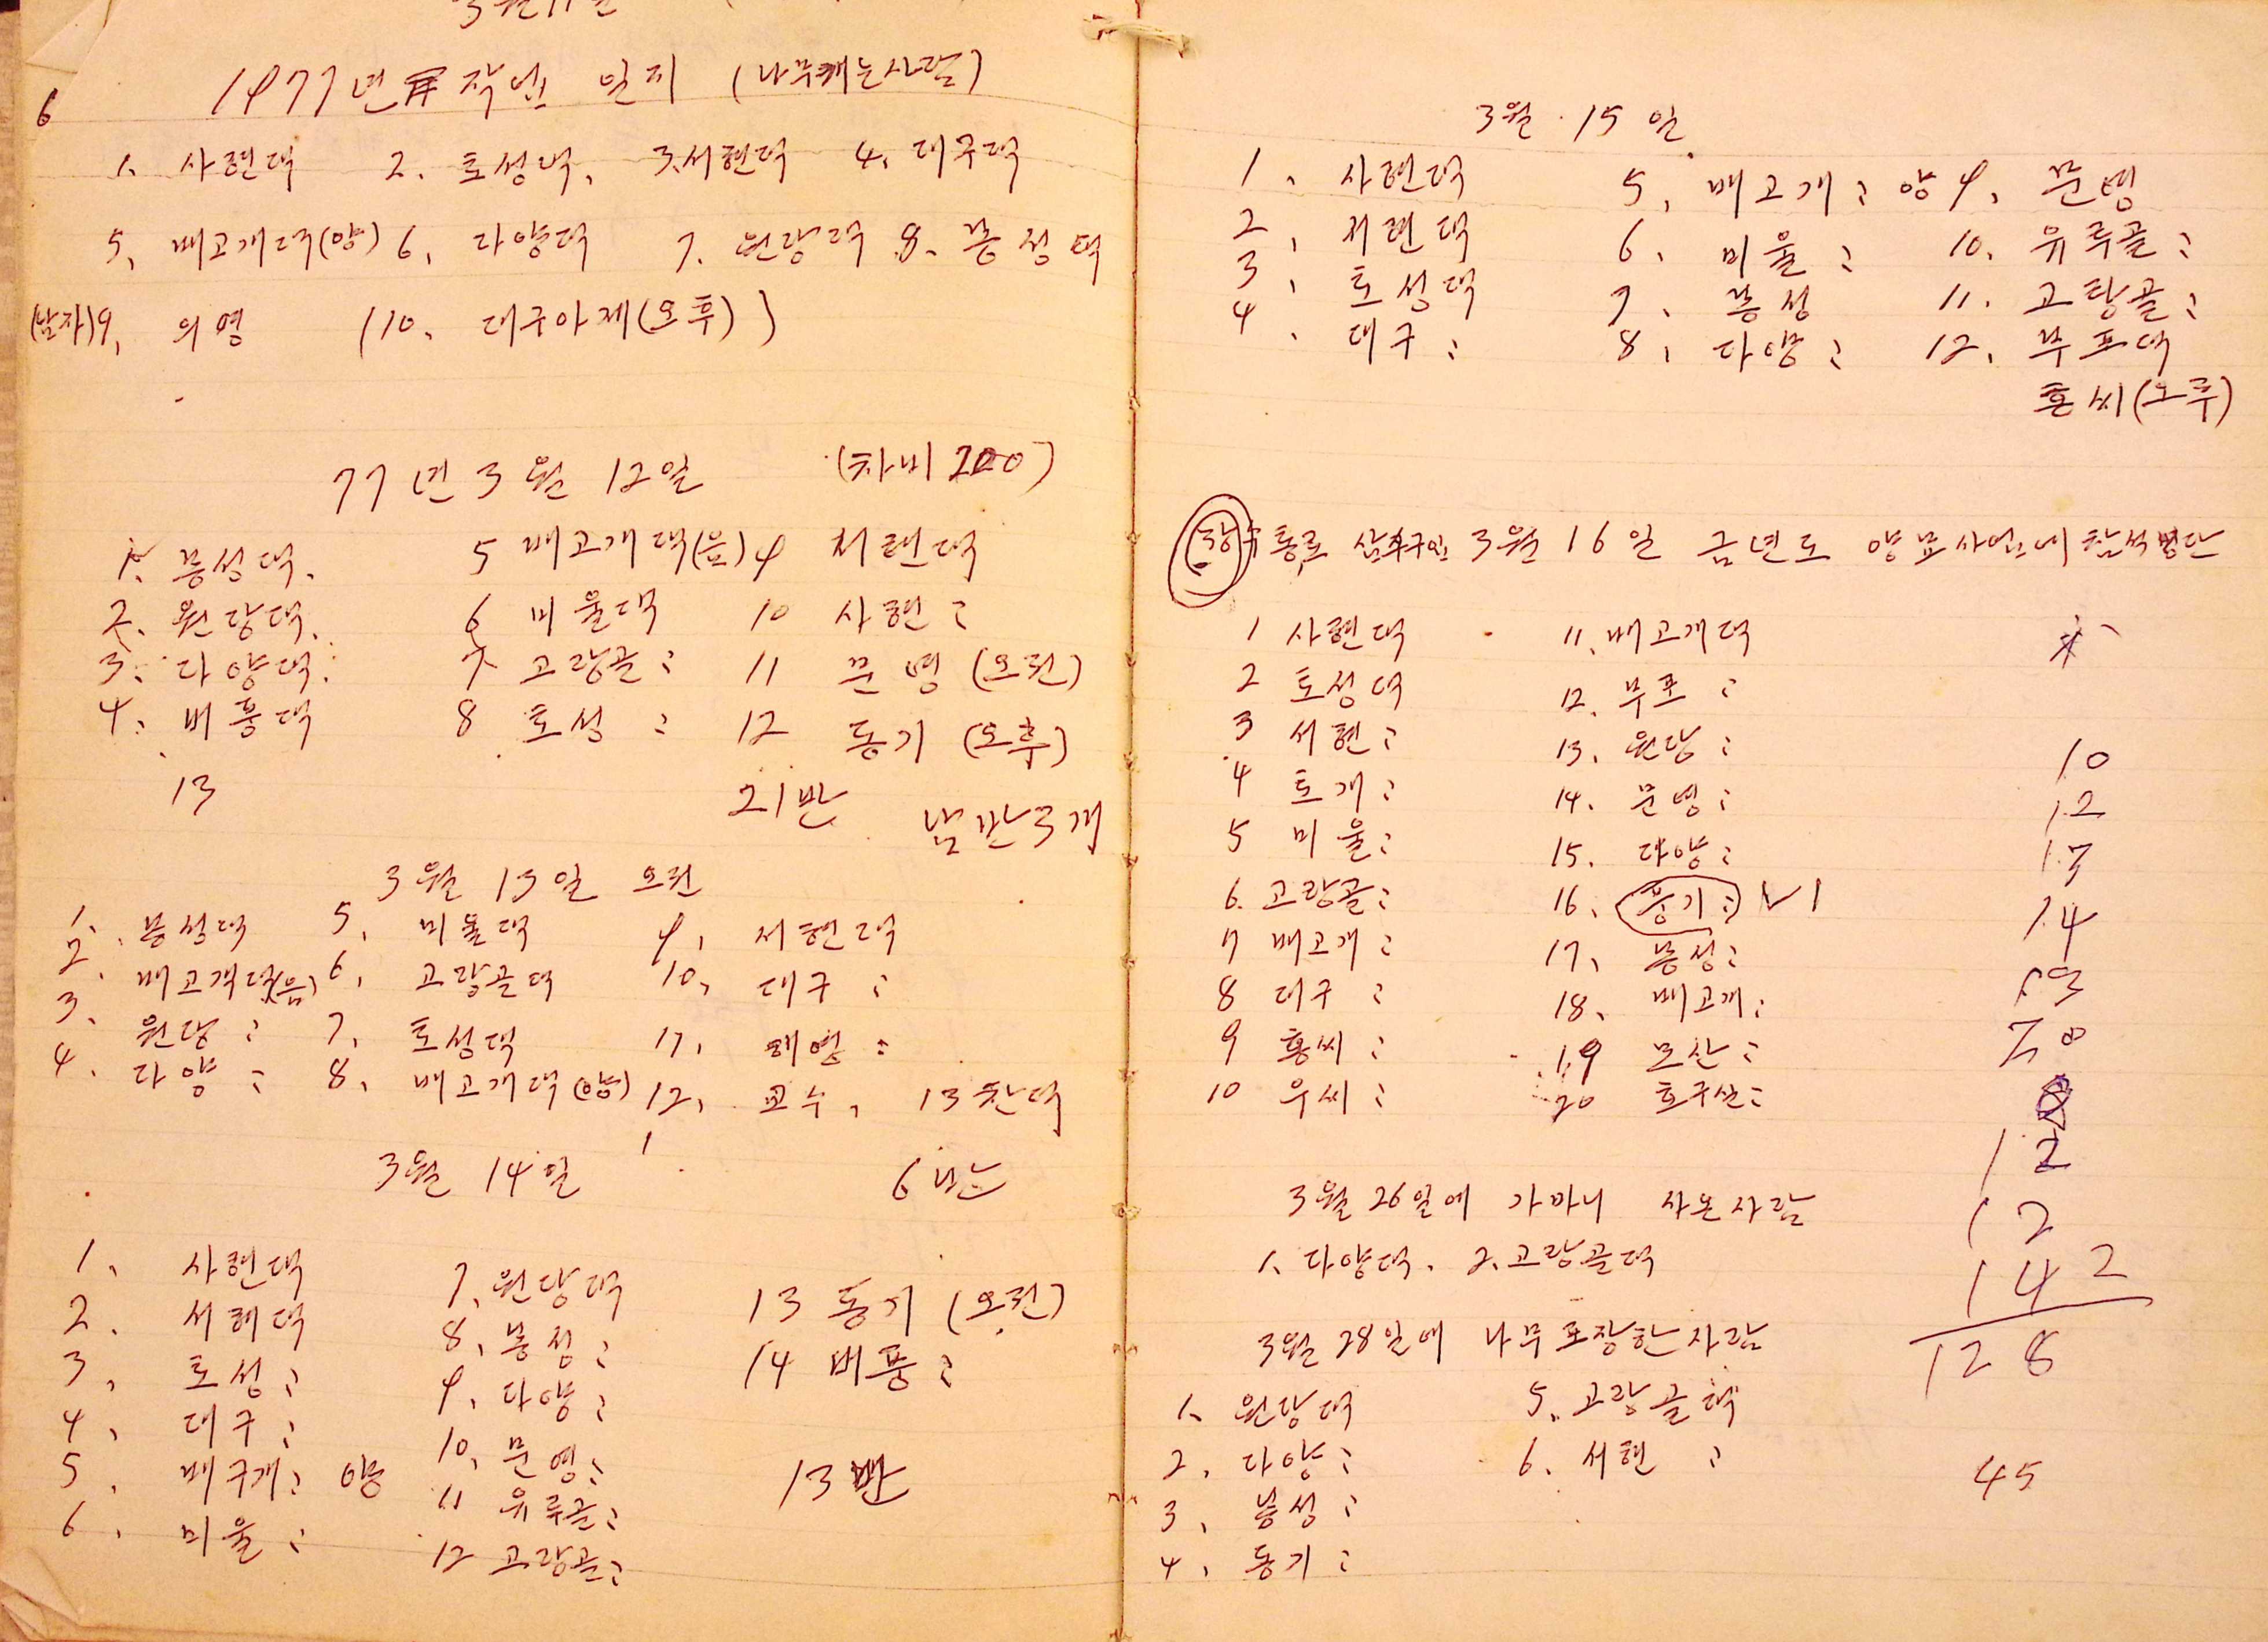 3월 11일
6
1977년 작년 일지 (나무캐는사람)
1. 사현댁 2. 토성댁, 3.서현댁 4. 대구댁
5, 배고개댁(양) 6, 다양댁 7. 원당댁 8. 봉성댁
(남자)9, 위영 (10. 대구아제(오후))
77년 3월 12일 (차비 200)
1. 봉성댁. 5 배고개댁(음) 9 서현댁
2. 원당댁. 6 미울댁 10 사현 :
3. 다양댁. 7 고랑골 : 11 문영 (오전)
4. 버풍댁 8 토성 : 12 동기 (오후)
13 21반 남반3개
3월 13일 오전
1. 봉성댁 5, 미울댁 9, 서현댁
2. 배고개댁(음) 6, 고랑골댁 10, 대구 :
3. 원당 : 7, 토성댁 11, 태영 :
4. 다양 : 8, 배고개댁(양) 12, 교수, 13 찬댁
3월 14일 6반
1, 사현댁 7, 원당댁 13 동기 (오전)
2. 서현댁 8, 봉성 : 14 버풍 :
3, 토성 : 9, 다양 :
4, 대구 : 10, 문영 : 13반
5, 배고개 : 양 11 유루골 :
6, 미울 : 12 고랑골 :
3월 15일
1, 사현댁 5, 배고개 : 양 9, 문영
2, 서현댁 6, 미울 : 10, 유루골 :
3, 토성댁 7, 봉성 11. 고랑골 :
4. 대구 : 8, 다양 : 12, 부포댁
홍씨(오후)
3월 16일 금년도 양묘사업에 참석명단
1 사현댁 11. 배고개댁
2 토성댁 12. 부포 :
3 서현 : 13. 원당 : 10
4 토개 : 14. 문영 : 12
5 미울 : 15. 다양 : 17
6. 고랑골 : 16, 풍기 : 14
7 배고개 : 17, 봉성 :
8 대구 : 18, 배고개 : 20
9 홍씨 : 19 모산 :
10 우씨 : 20 호구산 : 12
3월 26일에 가마니 사온사람 12
1. 다양댁. 2. 고랑골댁 142
3월 28일에 나무포장한사람 128
1. 원당댁 5. 고랑골댁
2. 다양 : 6. 서현 : 45
3, 봉성 :
4, 동기 :